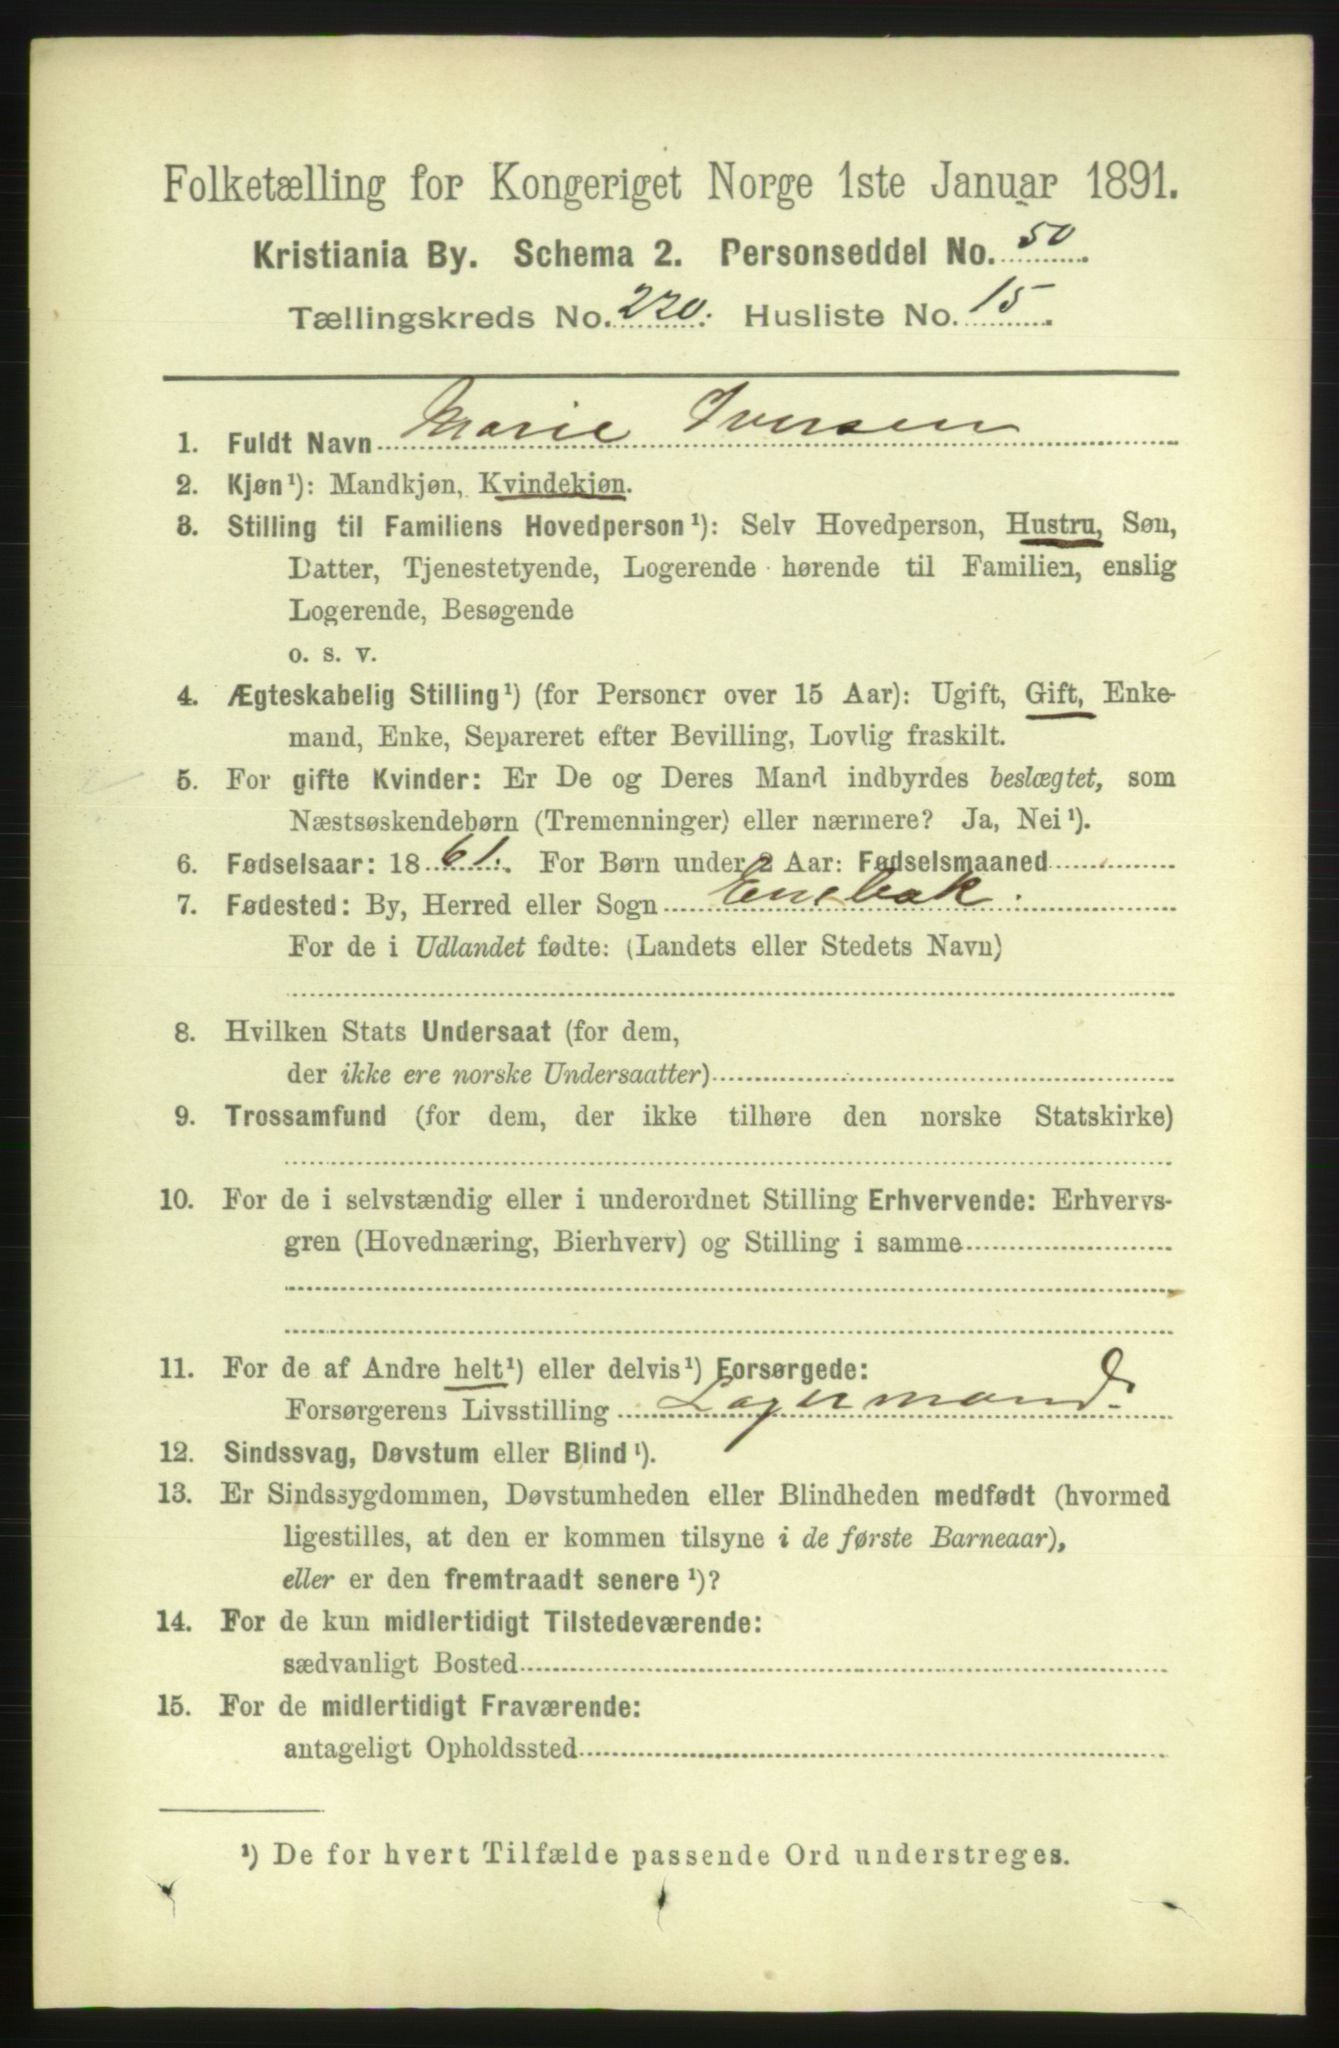 Folketælling for Kongeriget Norge 1ste Januar 1891.
Kristiania By. Schema 2. Personseddel No. 50
Tællingskreds No. 220. Husliste No. 15
1. Fuldt Navn Marie Iversen
2. Kjøn¹): Mandkjøn, Kvindekjøn.
3. Stilling til Familiens Hovedperson¹): Selv Hovedperson, Hustru, Søn,
Datter, Tjenestetyende, Logerende hørende til Familien, enslig
Logerende, Besøgende
o. s. v.
4. Ægteskabelig Stilling¹) (for Personer over 15 Aar): Ugift, Gift, Enke-
mand, Enke, Separeret efter Bevilling, Lovlig fraskilt.
5. For gifte Kvinder: Er De og Deres Mand indbyrdes beslægtet, som
Næstsøskendebørn (Tremenninger) eller nærmere? Ja, Nei¹).
6. Fødselsaar: 1861. For Børn under 2 Aar: Fødselsmaaned
7. Fødested: By, Herred eller Sogn Enebak
For de i Udlandet fødte: (Landets eller Stedets Navn)
8. Hvilken Stats Undersaat (for dem,
der ikke ere norske Undersaatter)
9. Trossamfund (for dem, der ikke tilhøre den norske Statskirke)
10. For de i selvstændig eller i underordnet Stilling Erhvervende: Erhvervs-
gren (Hovednæring, Bierhverv) og Stilling i samme
11. For de af Andre helt¹) eller delvis¹) Forsørgede:
Forsørgerens Livsstilling Lagermand.
12. Sindssvag, Døvstum eller Blind¹).
13. Er Sindssygdommen, Døvstumheden eller Blindheden medfødt (hvormed
ligestilles, at den er kommen tilsyne i de første Barneaar),
eller er den fremtraadt senere¹)?
14. For de kun midlertidigt Tilstedeværende:
sædvanligt Bosted
15. For de midlertidigt Fraværende:
antageligt Opholdssted
¹) De for hvert Tilfælde passende Ord understreges.